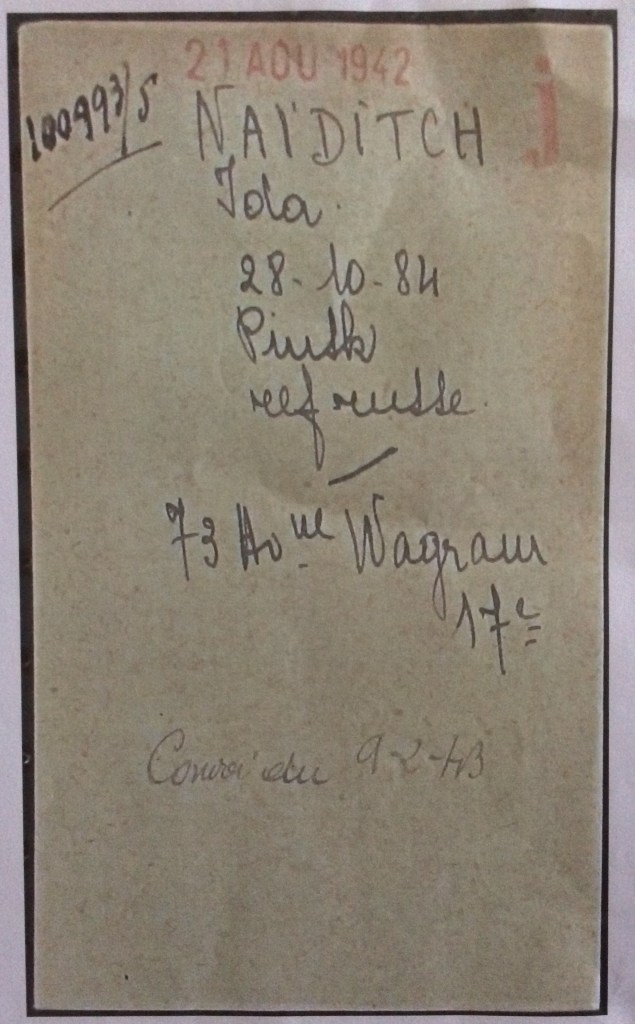 21 AOU 1942
j
100993/5
NAÏDITCH
Ida.
28-10-84
Pinsk
ref russe.
73 Avnue Wagram
17e
Convoi du 9-2-43